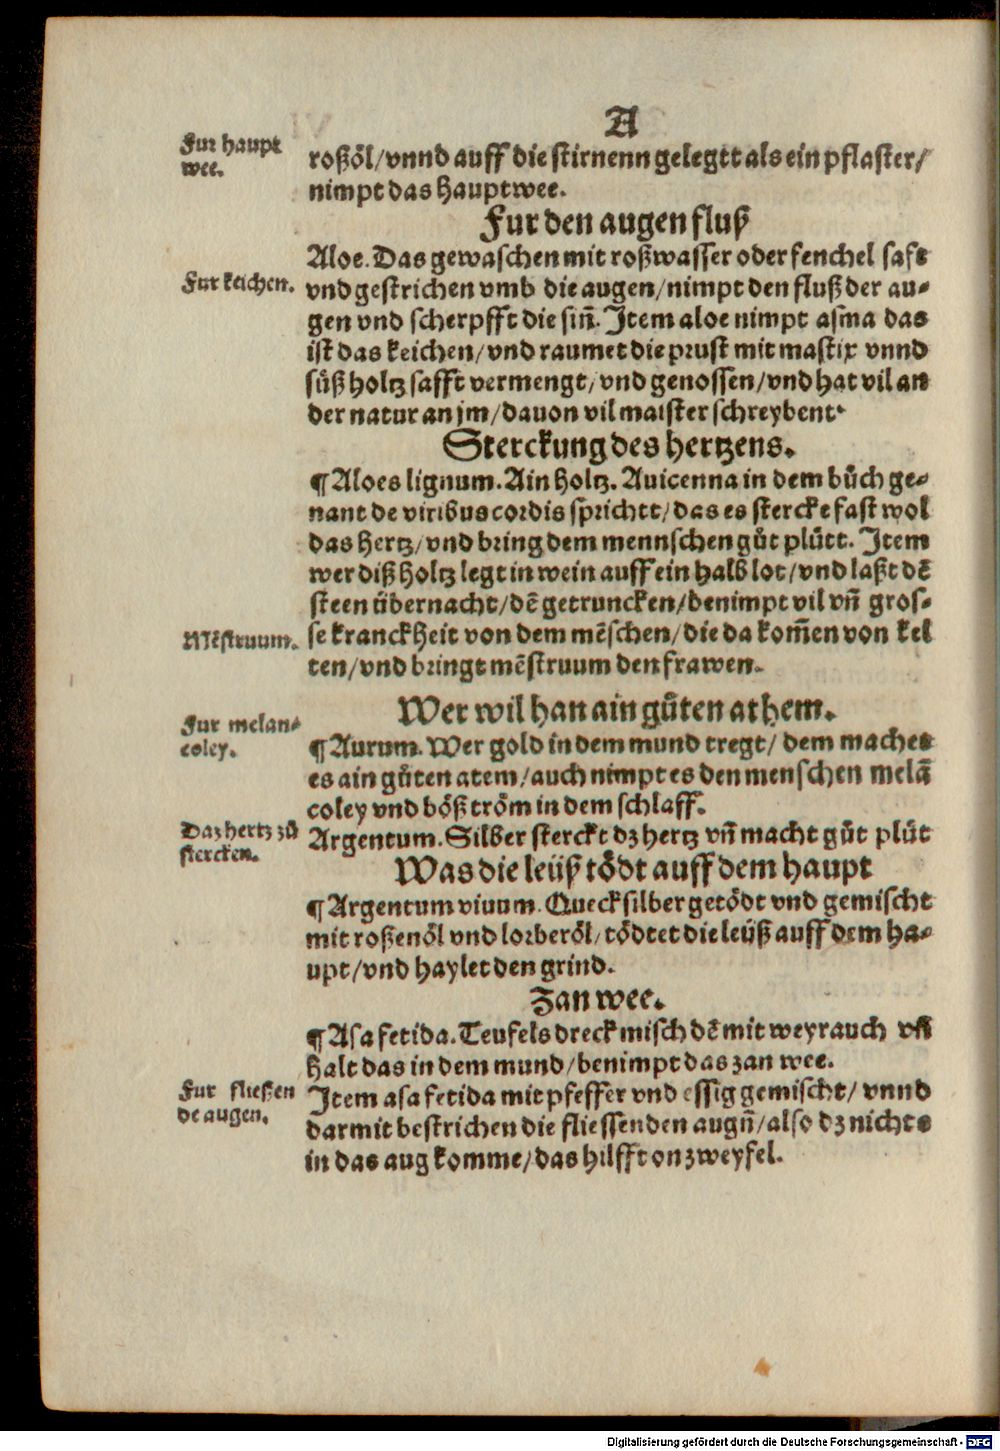 A
Fur haupt
wee.
roßöl/vnnd auff die stirnenn gelegtt als ein pflaster/
nimpt das hauptwee.
Fur den augen fluß
Aloe. Das gewaschen mit roßwasser oder fenchel saft
Fur keichen.
vnd gestrichen vmb die augen/nimpt den fluß der au⸗
gen vnd scherpfft die siñ. Item aloe nimpt asma das
ist das keichen/vnd raumet die prust mit mastix vnnd
sůß holtz safft vermengt/vnd genossen/vnd hat vil an
der natur an jm/dauon vil maister schreybent.
Sterckung des hertzens.
¶Aloes lignum. Ain holtz. Auicenna in dem bůch ge⸗
nant de viribus cordis sprichtt/das es stercke fast wol
das hertz/vnd bring dem mennschen gůt plůtt. Item
wer diß holtz legt in wein auff ein halb lot/vnd laßt dē
steen übernacht/dē getruncken/benimpt vil vñ gros⸗
Mēstruum.
se kranckheit von dem mēschen/die da kom̃en von kel
ten/vnd bringt mēstruum den frawen.
Wer wil han ain gůten athem.
Fur melan⸗
coley.
¶Aurum. Wer gold in dem mund tregt/dem maches
es ain gůten atem/auch nimpt es den menschen melā
coley vnd bőß trőm in dem schlaff.
Daz hertz zů
stercken.
Argentum. Silber sterckt dz hertz vñ macht gůt plůt
Was die leüß tődt auff dem haupt
¶Argentum viuum. Quecksilber getődt vnd gemischt
mit roßenől vnd lorberől/tődtet die leüß auff dem ha⸗
upt/vnd haylet den grind.
Zan wee.
¶Asa fetida. Teufels dreck misch dē mit weyrauch vñ
halt das in dem mund/benimpt das zan wee.
Fur fließen
de augen.
Item asa fetida mit pfeffer vnd essig gemischt/vnnd
darmit bestrichen die fliessenden augñ/also dz nichts
in das aug komme/das hilfft on zweyfel.
Digitalisierung gefördert durch die Deutsche Forschungsgemeinschaft - DFG